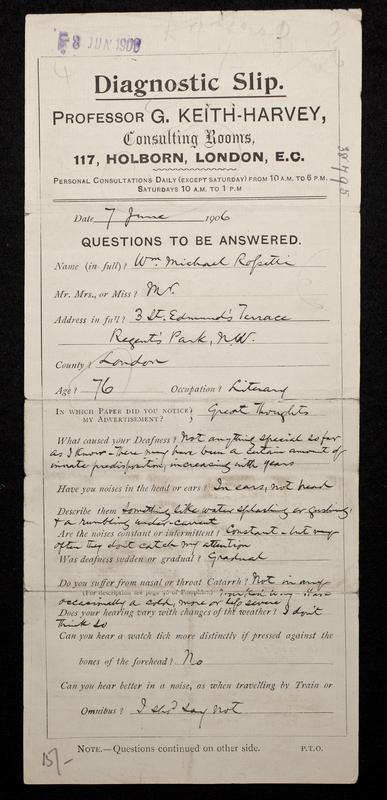 8 JUN 1906
Diagnostic Slip.
PROFESSOR G. KEITH-HARVEY,
Consulting Rooms,
117, HOLBORN, LONDON, E.C.
PERSONAL CONSULTATIONS DAILY (EXCEPT SATURDAY) FROM 10 A.M. TO 6 P.M.
SATURDAYS 10 A.M. TO 1 P.M
38495
Date 7 June 1906
QUESTIONS TO BE ANSWERED.
Name (in full)? Wm Michael Rossetti
Mr. Mrs., or Miss? Mr.
Address in full? 3 St. Edmund's Terrace
Regent's Park, N.W.
County? London
Age? 76 Occupation? Literary
IN WHICH PAPER DID YOU NOTICE MY ADVERTISEMENT? Great Thoughts
What caused your Deafness? Not anything special so far
as I know – There may have been a certain amount of
innate predisposition, increasing with years
Have you noises in the head or ears? In ears, not head
Describe them Something like water splashing or gushing,
& a rumbling under-current
Are the noises constant or intermittent? Constant – but very
often they don't catch my attention
Was deafness sudden or gradual? Gradual
Do you suffer from nasal or throat Catarrh? Not in any
(For description see page of Pamphlet.) way – Have
occasionally a cold, more or less severe
Does your hearing vary with changes of the weather? I don't
think so
Can you hear a watch tick more distinctly if pressed against the
bones of the forehead? No
Can you hear better in a noise, as when travelling by Train or
Omnibus? I shd say not
15/-
NOTE.—Questions continued on other side. P.T.O.